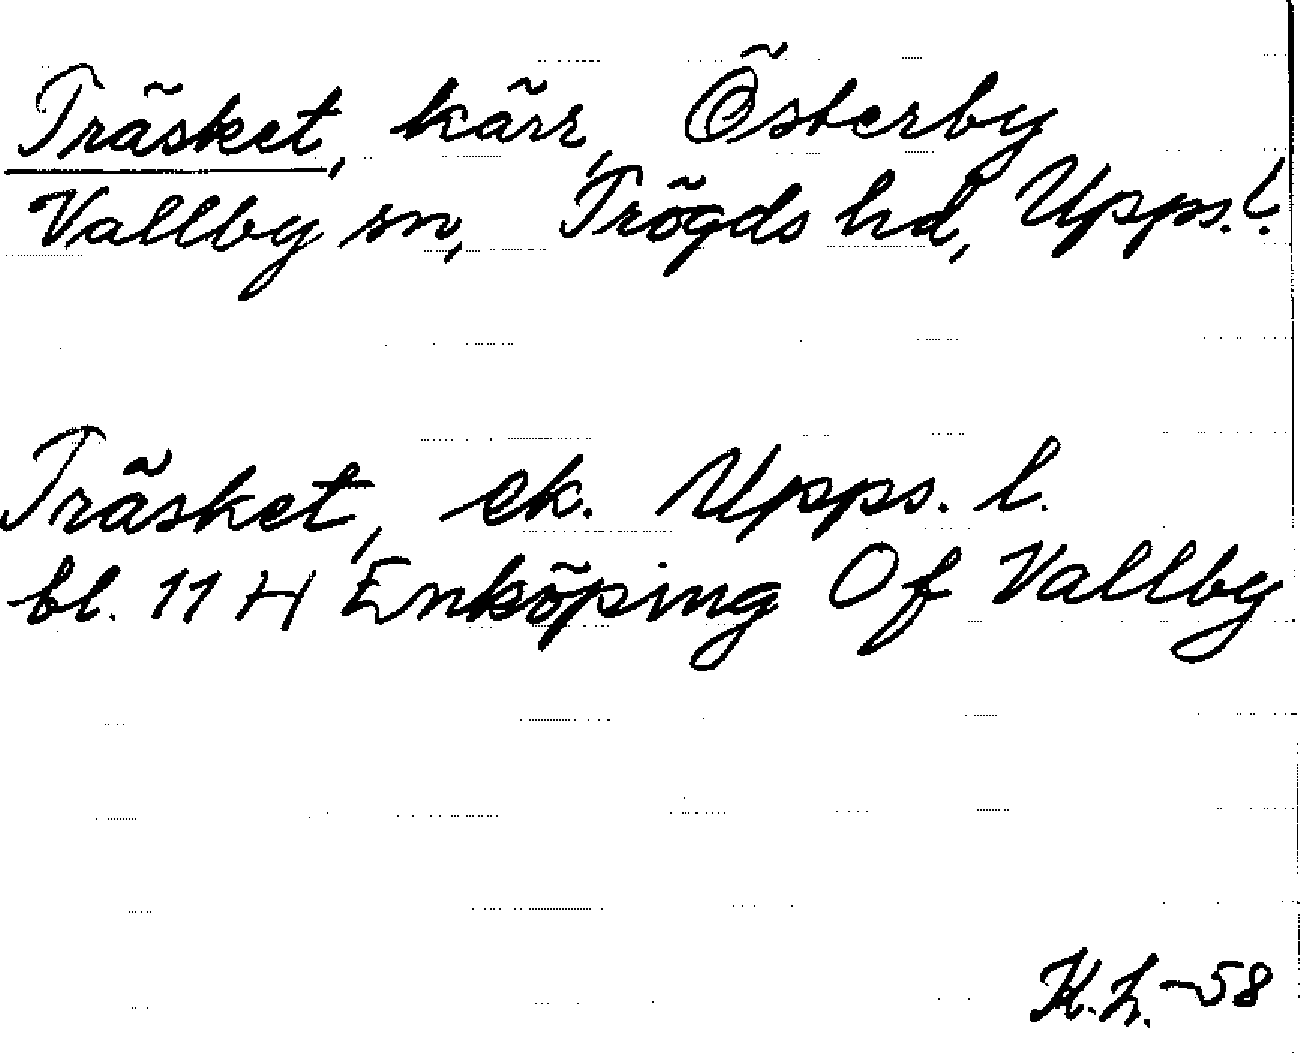 Träsket, kärr, Österby
Vallby sn, Trögds hd, Upps.l.
Träsket, ek. Upps. l.
bl. 11 H Enköping Of Vallby
K.L.-58